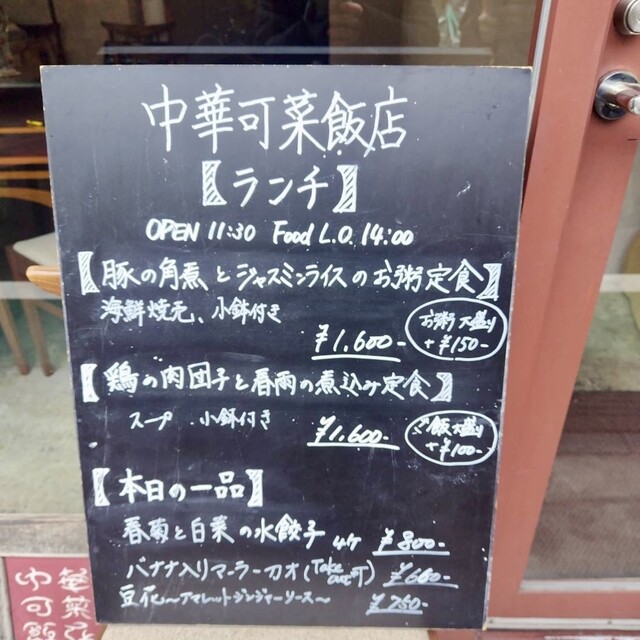 中華可菜飯店
【ランチ】
OPEN 11:30 Food L.O. 14:00
【豚の角煮とジャスミンライスのお粥定食】
海鮮焼売、小鉢付き
¥1,600-
お粥大盛り
+¥150-
【鶏の肉団子と春雨の煮込み定食】
スープ、小鉢付き
¥1,600-
ご飯大盛り
+¥100-
【本日の一品】
春菊と白菜の水餃子 4ケ ¥800-
バナナ入りマーラーカオ(Take out可) ¥660-
豆花~アマレットジンジャーソース~ ¥750-
中華
可菜
飯